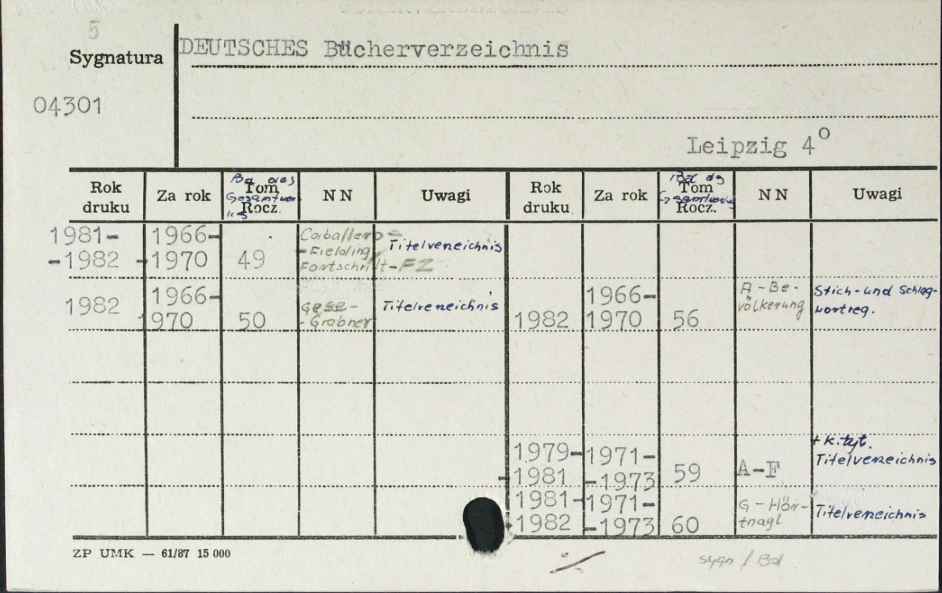 5
Sygnatura
DEUTSCHES Bücherverzeichnis
04301
Leipzig 4°
Rok druku Za rok Bd des Tom Rocz. NN Uwagi Rok druku Za rok Bd ds Tom Rocz. NN Uwagi
1981- 1966- Caballero- Titelverzeichnis
-1982 -1970 49 -Fielding, Fortschritt-FZ
1982 1966-1970 50 Gese- -Grabner Titelverzeichnis 1982 1966-1970 56 A-Bevölkerung Stich- und Schlagwortreg.
1979-1981 1971-1973 59 A-F + k.tyt. Titelverzeichnis
1981-1982 1971-1973 60 G-Hörtnagl Titelverzeichnis
ZP UMK — 61/87 15 000
sygn / Bd